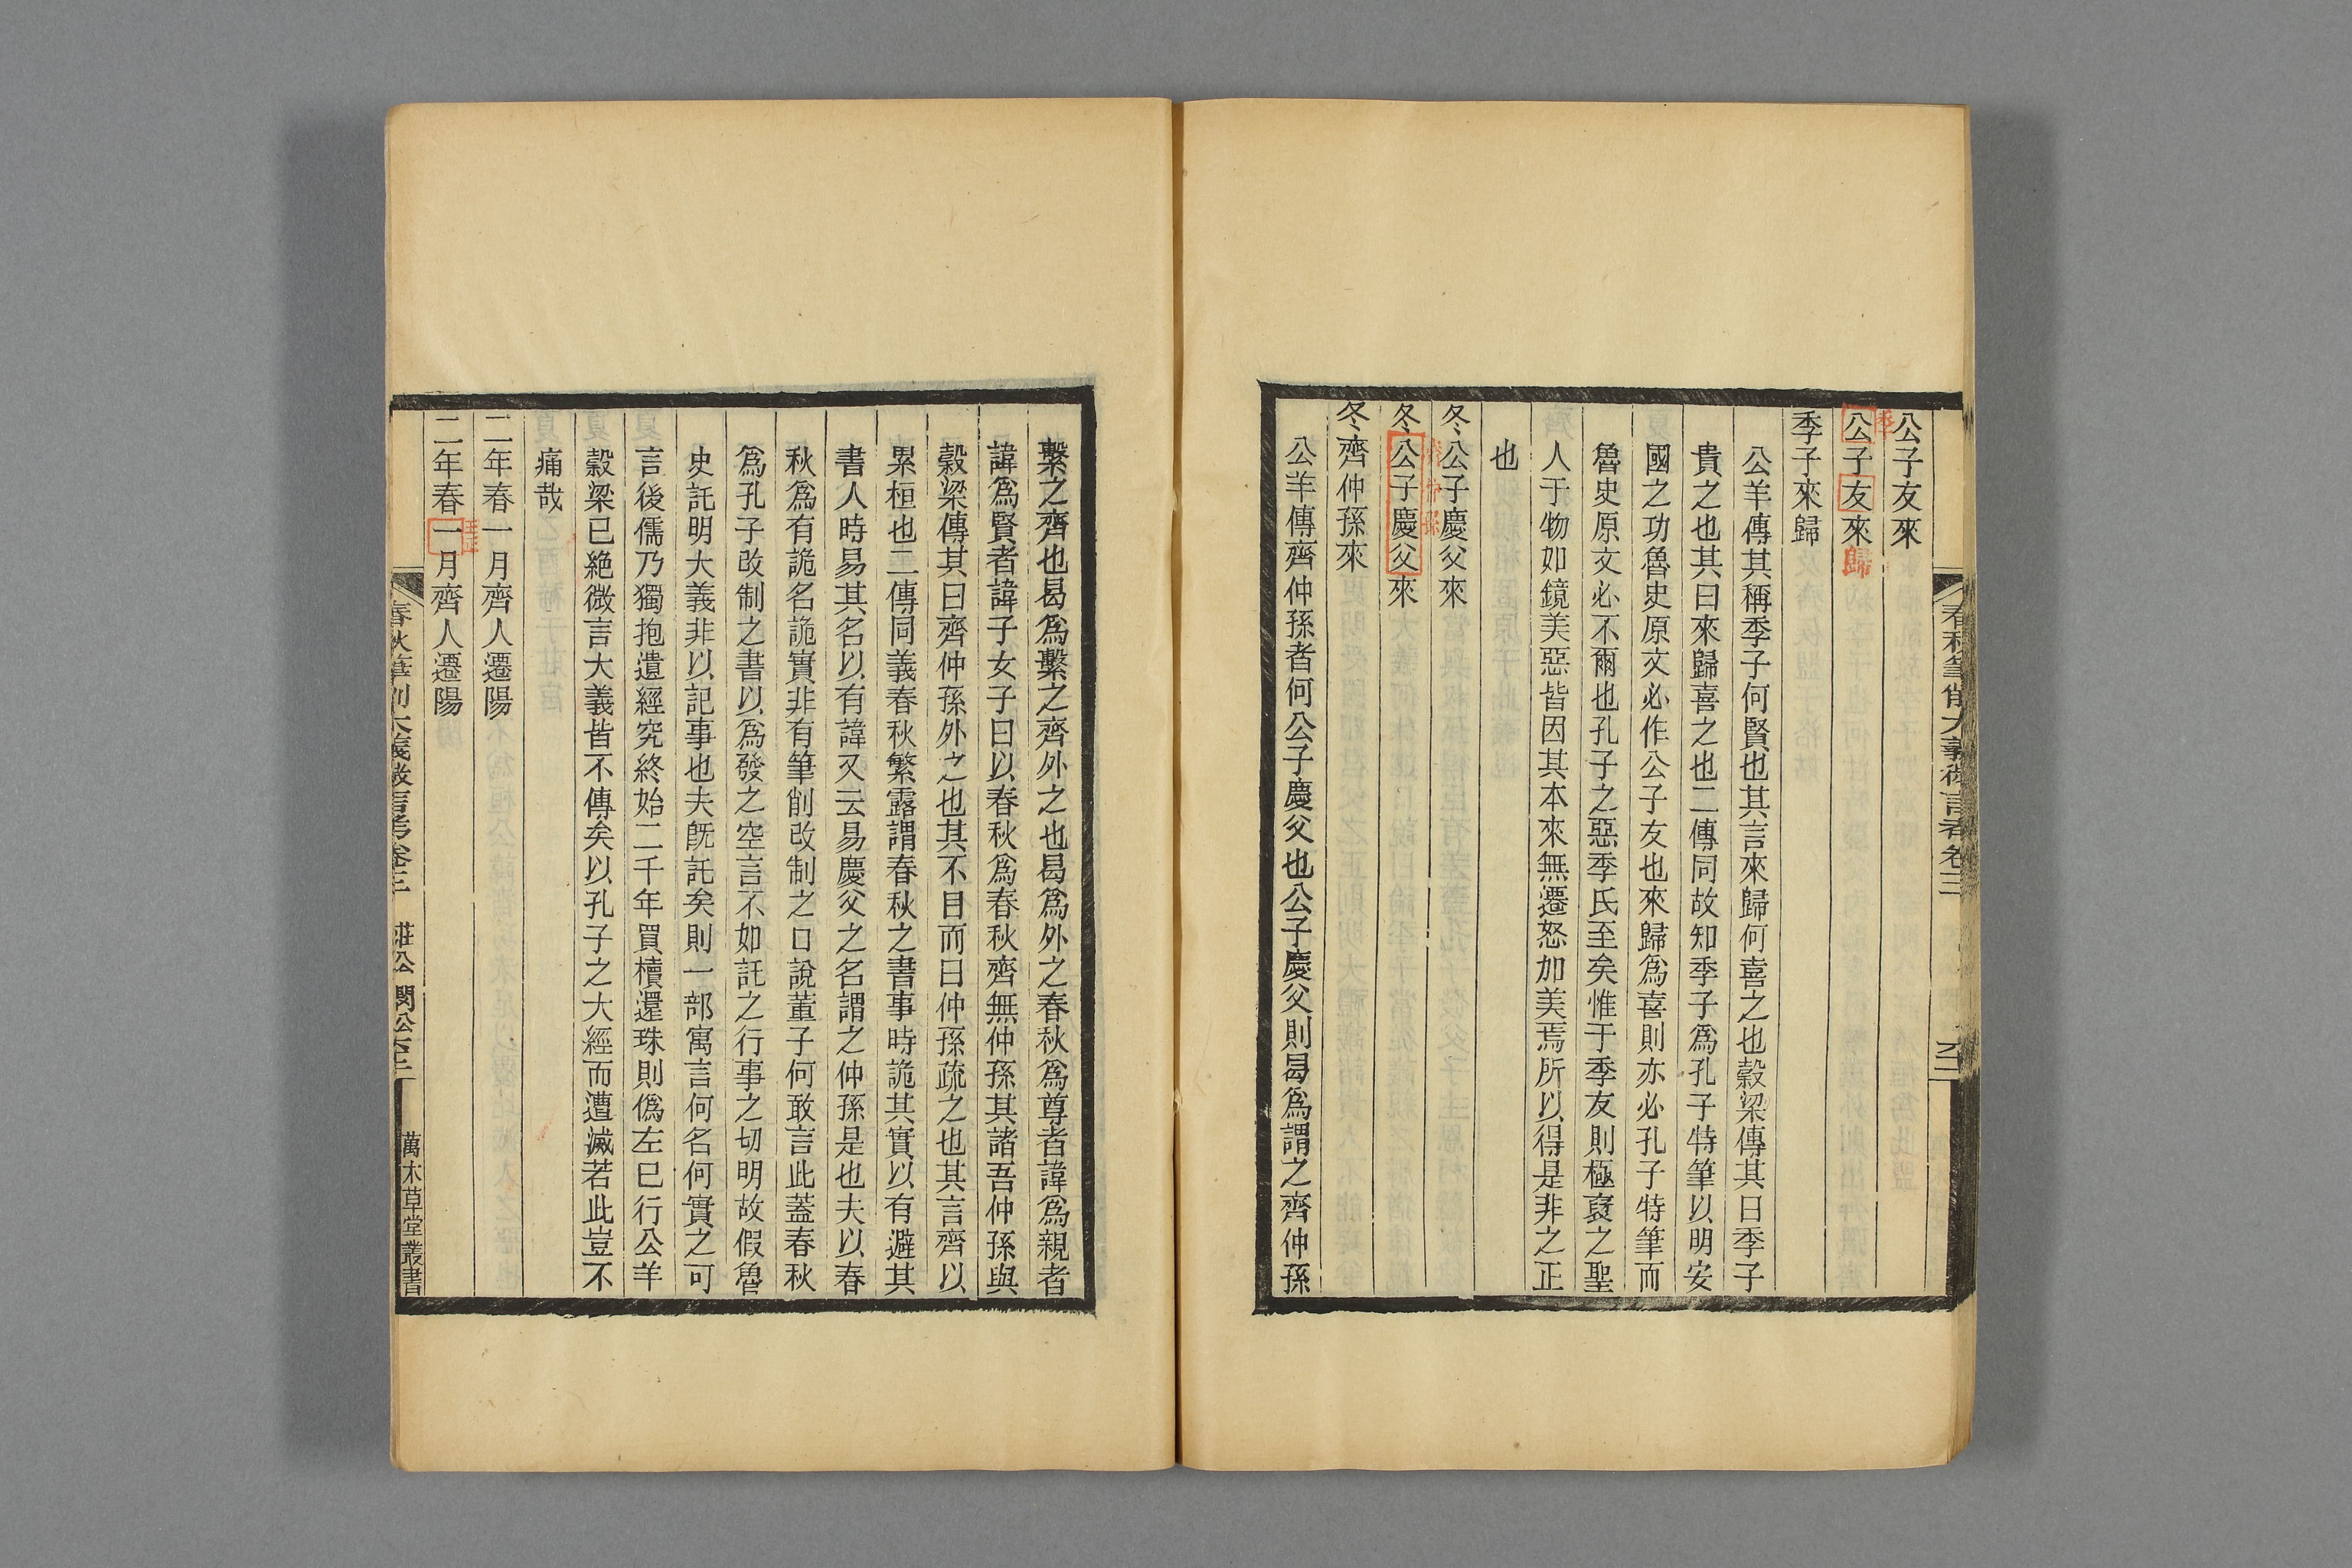 公子友來
季
公子友來歸
季子來歸
公羊傳其稱季子何賢也其言來歸何喜之也穀梁傳其曰季子
貴之也其曰來歸喜之也二傳同故知季子爲孔子特筆以明安
國之功魯史原文必作公子友也來歸爲喜則亦必孔子特筆而
魯史原文必不爾也孔子之惡季氏至矣惟于季友則極襃之聖
人于物如鏡美惡皆因其本來無遷怒加美焉所以得是非之正
也
冬公子慶父來
齊仲孫
冬公子慶父來
冬齊仲孫來
公羊傳齊仲孫者何公子慶父也公子慶父則曷爲謂之齊仲孫
繫之齊也曷爲繫之齊外之也曷爲外之春秋爲尊者諱爲親者
諱爲賢者諱子女子曰以春秋爲春秋齊無仲孫其諸吾仲孫與
穀梁傳其曰齊仲孫外之也其不目而曰仲孫疏之也其言齊以
累桓也二傳同義春秋繁露謂春秋之書事時詭其實以有避其
書人時易其名以有諱又云易慶父之名謂之仲孫是也夫以春
秋爲有詭名詭實非有筆削改制之口說董子何敢言此蓋春秋
爲孔子改制之書以爲發之空言不如託之行事之切明故假魯
史託明大義非以記事也夫旣託矣則一部寓言何名何實之可
言後儒乃獨抱遺經究終始二千年買櫝還珠則僞左已行公羊
穀梁已絶微言大義皆不傳矣以孔子之大經而遭滅若此豈不
痛哉
二年春一月齊人遷陽
王正
二年春一月齊人遷陽
春秋筆削大義微言考卷三 莊公 閔公
萬木草堂叢書
春秋筆削大義微言考卷三